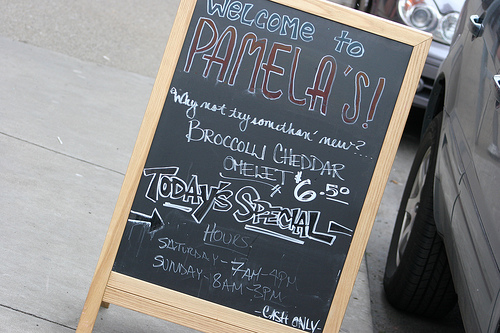 WELCOME to
PAMELA'S!
Why not try somethan' new?...
BROCCOLI CHEDDAR
OMELET $6.50
TODAY'S SPECIAL
HOURS:
SATURDAY - 7AM - 4PM
SUNDAY - 8AM - 3PM
- CASH ONLY -